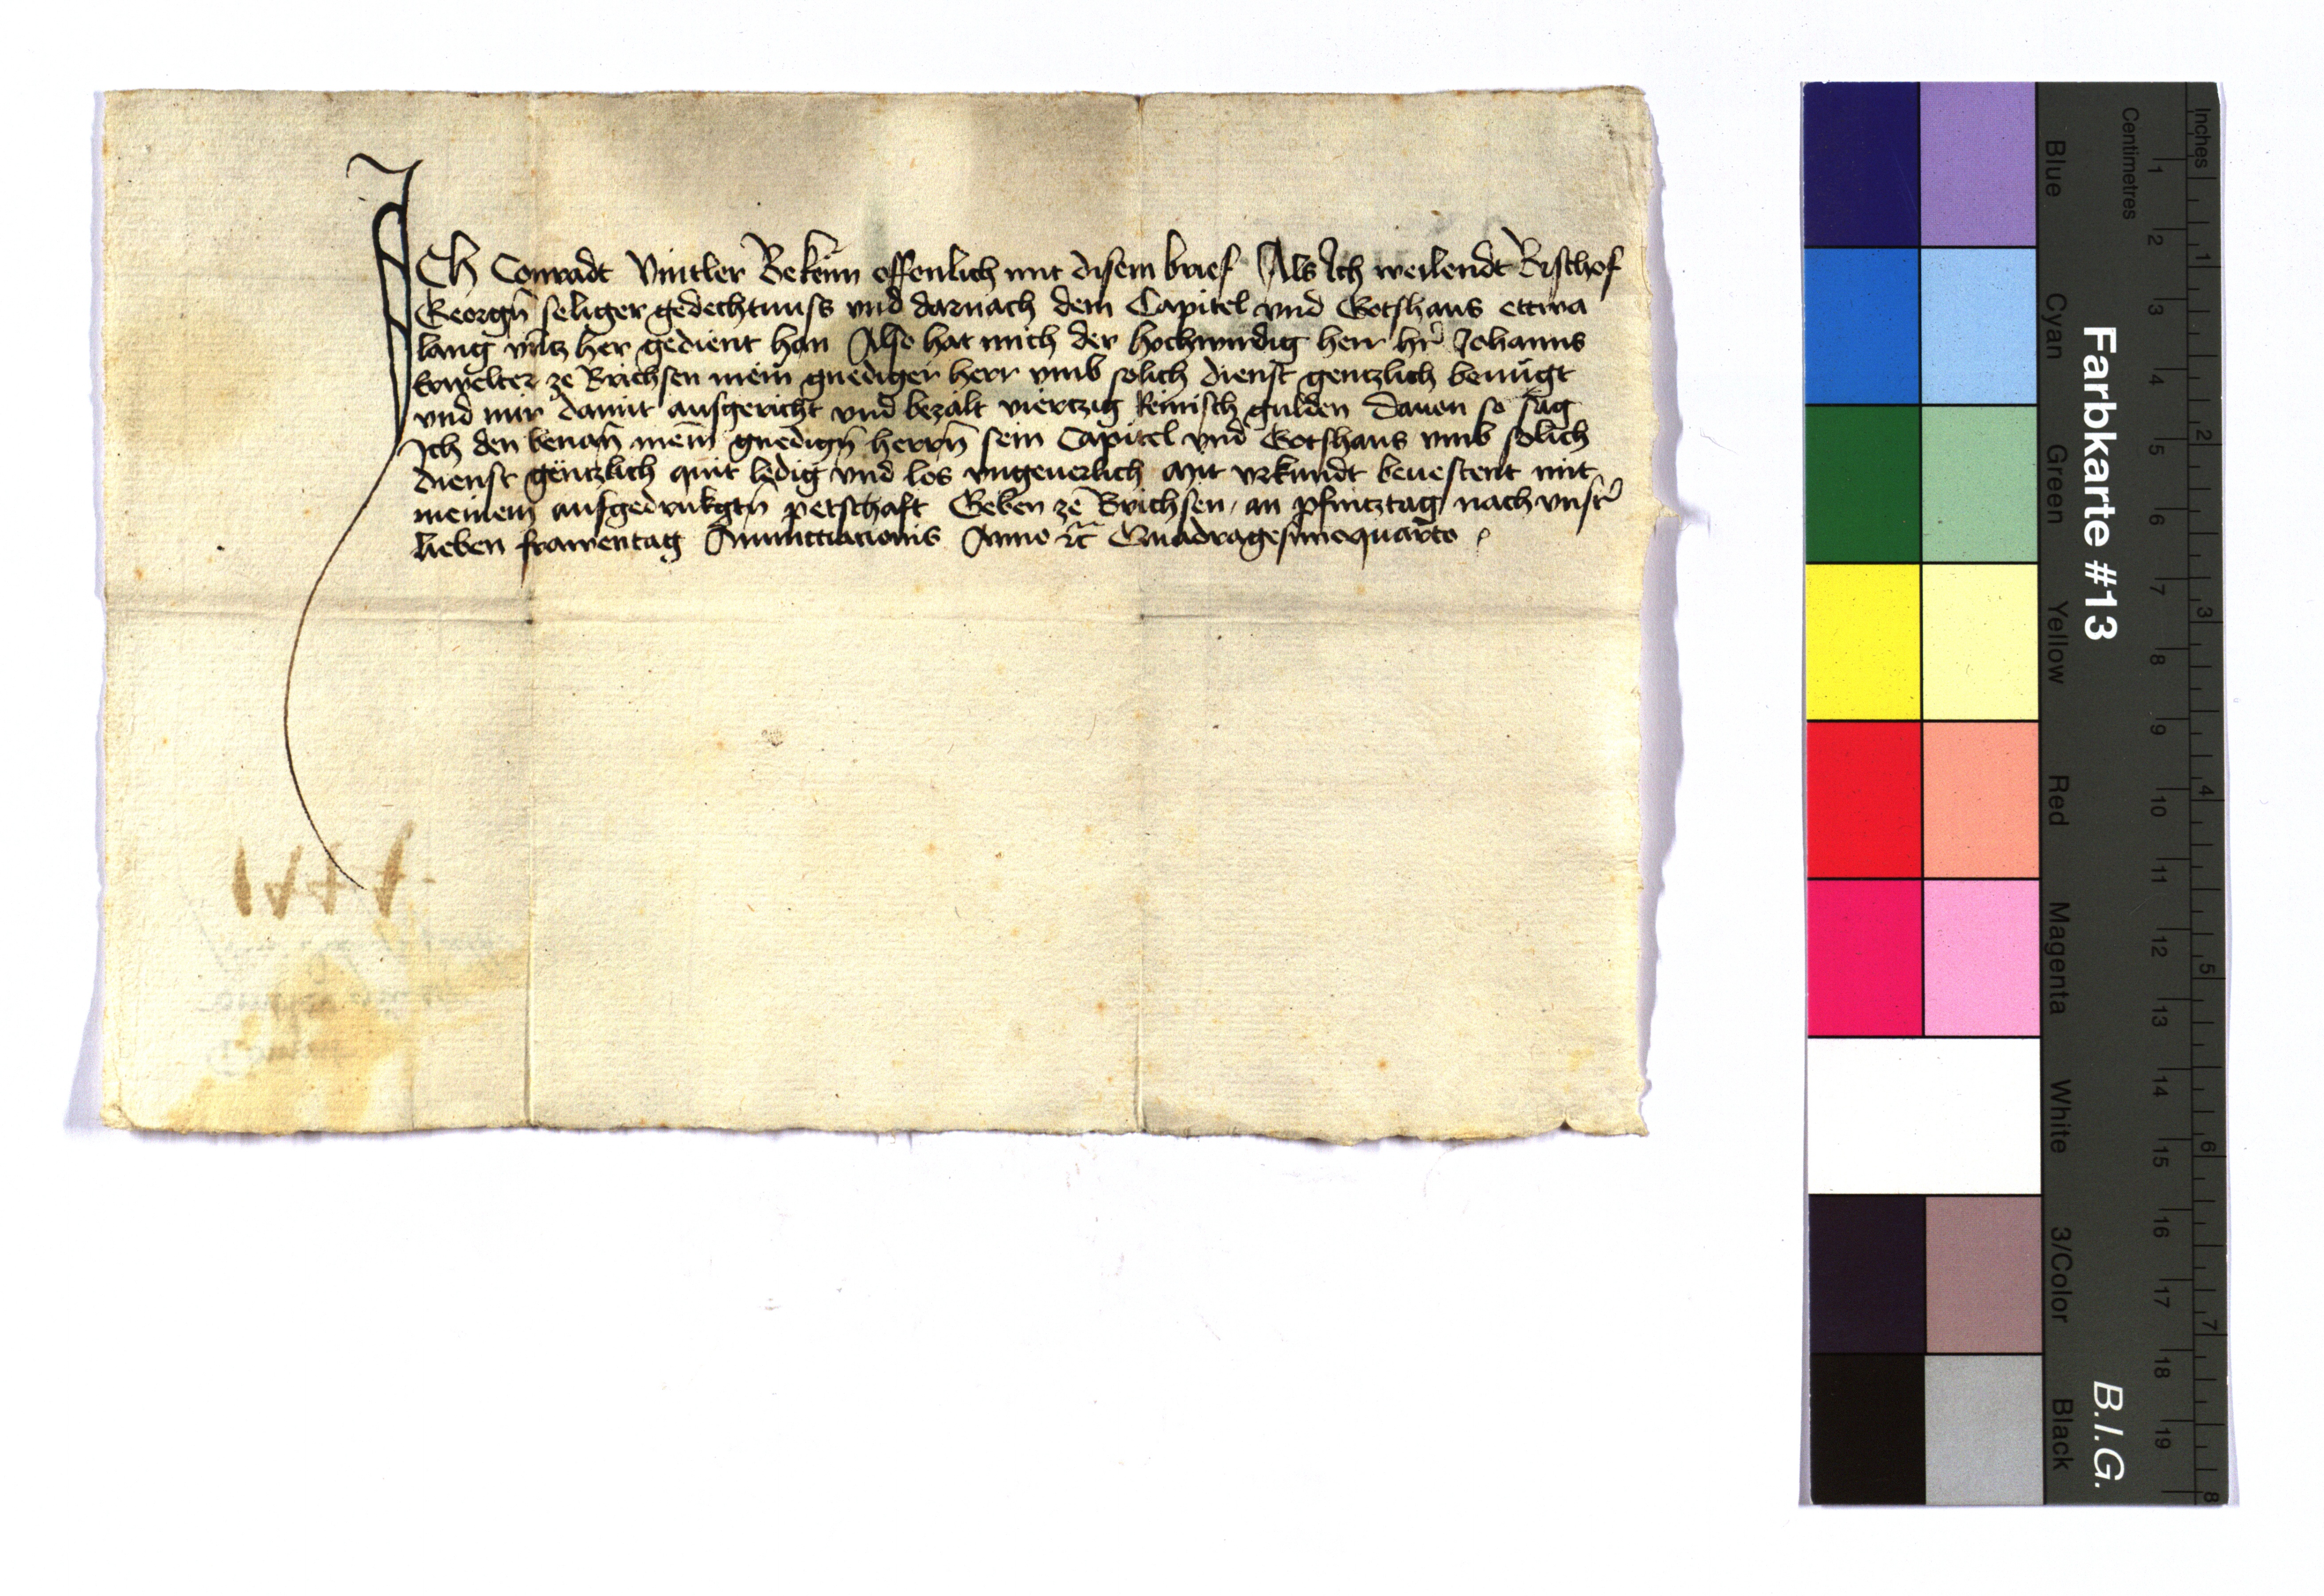 ICh Conradt Vintler Bekenn offenlich mit disem brief Als Ich weilendt Bischof
Georgn̄ seliger gedechtnuss vnd darnach dem Capitel vnd Gotshaus ettwa
lang vntz her gedient han Also hat mich der hochwirdig herr hr̄ Johanns
Erwelter ze Brichsen mein gnediger herr vmb solich dienst gentzlich benu̇gt
vnd mir damit ausgericht vnd bezalt viertzig Reinisch gulden dauon so sag
Ich den benan̄ mein̄ gnedign̄ herrn̄ sein Capitel vnd Gotshaus vmb solich
dienst gëntzlich quit ledig vnd los vngeuerlich Mit vrkundt beuestent mit
meinem aufgedrukgtn̄ petschaft Geben ze Brichsen an pfintztag nach vnsr̄
lieben frawentag Annuncciacionis Anno ꝛc̄ Quadragesimoquarto
1441
Farbkarte #13
B.I.G.
Blue
Cyan
Green
Yellow
Red
Magenta
White
3/Color
Black
Centimetres
1 2 3 4 5 6 7 8 9 10 11 12 13 14 15 16 17 18 19
Inches
1 2 3 4 5 6 7 8